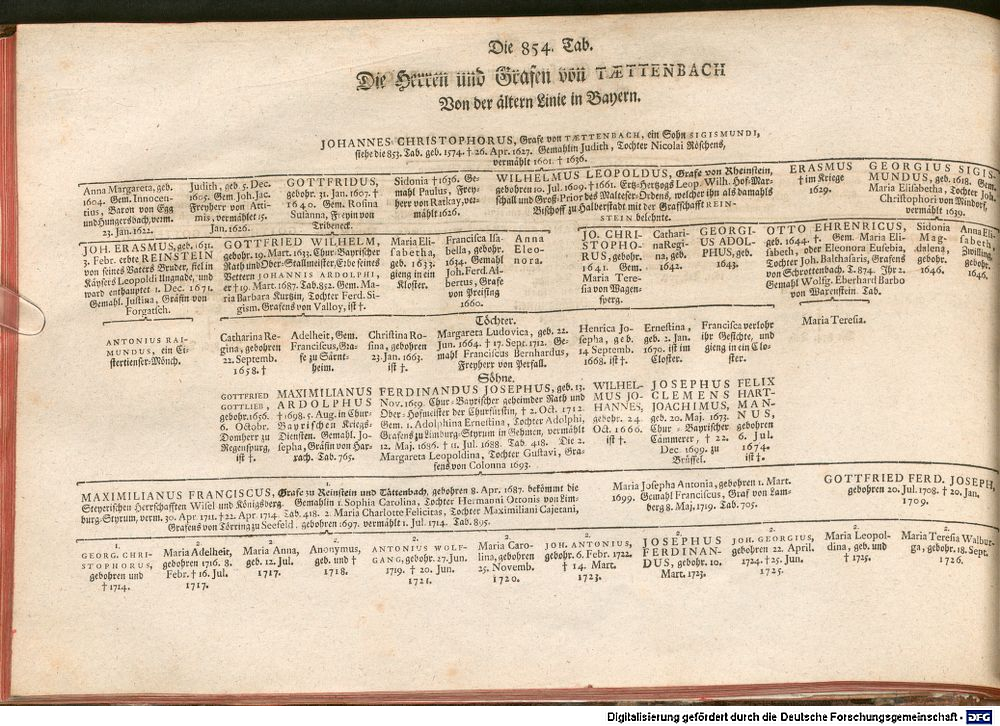 Die 854. Tab.
Die Herren und Grafen von TÆTTENBACH
Von der ältern Linie in Bayern.
JOHANNES CHRISTOPHORUS, Grafe von TÆTTENBACH, ein Sohn SIGISMUNDI,
siehe die 853. Tab. geb. 1574. † 26. Apr. 1627. Gemahlin Judith, Tochter Nicolai Röschens,
vermählt 1601. † 1636.
Anna Margareta, geb.
1604. Gem. Innocen-
tius, Baron von Egg
und Hungersbach, verm.
23. Jan. 1622.
Judith, geb. 5. Dec.
1605. Gem. Joh. Jac.
Freyherr von Atti-
mis, vermählet 15.
Jan. 1626.
GOTTFRIDUS,
gebohr. 31. Jan. 1607. †
1640. Gem. Rosina
Susanna, Freyin von
Tribeneck.
Sidonia † 1636. Ge-
mahl Paulus, Frey-
herr von Ratkay, ver-
mählt 1626.
WILHELMUS LEOPOLDUS, Grafe von Rheinstein,
gebohren 10. Jul. 1609. † 1661. Ertz-Hertzogs Leop. Wilh. Hof-Mar-
schall und Groß-Prior des Malteser-Ordens, welcher ihn als damahls
Bischoff zu Halberstadt mit der Graffschafft REIN-
STEIN belehnte.
ERASMUS
† im Kriege
1629.
GEORGIUS SIGIS-
MUNDUS, geb. 1618. Gem.
Maria Elisabetha, Tochter Joh.
Christophori von Mindorf,
vermählt 1639.
JOH. ERASMUS, geb. 1631.
3. Febr. erbte REINSTEIN
von seines Vaters Bruder, fiel in
Käysers Leopoldi Ungnade, und
ward enthauptet 1. Dec. 1671.
Gemahl. Justina, Gräfin von
Forgatsch.
GOTTFRIED WILHELM,
gebohr. 19. Mart. 1633. Chur-Bayrischer
Rath und Ober-Stallmeister, Erbe seines
Vettern JOHANNIS ARDOLPHI,
er † 19. Mart. 1687. Tab. 852. Gem. Ma-
ria Barbara Kurtzin, Tochter Ferd. Si-
gism. Grafens von Valloy, ist †.
Maria Eli-
sabetha,
geb. 1633.
gieng in ein
Kloster.
Francisca Isa-
bella, gebohr.
1634. Gemahl
Joh. Ferd. Al-
bertus, Grafe
von Preising
1660.
Anna
Eleo-
nora.
JO. CHRI-
STOPHO-
RUS, gebohr.
1641. Gem.
Maria Tere-
sia von Wagen-
sperg.
Cathari-
na Regi-
na, geb.
1642.
GEORGI-
US ADOL-
PHUS, geb.
1643.
OTTO EHRENRICUS,
geb. 1644. †. Gem. Maria Eli-
sabeth, oder Eleonora Eusebia,
Tochter Joh. Balthasaris, Grafens
von Schrottenbach. T. 874. Ihr 2.
Gemahl Wolfg. Eberhard Barbo
von Waxenstein. Tab.
Sidonia
Mag-
dalena,
gebohr.
1646.
Anna Eli-
sabeth,
Zwilling,
gebohr.
1646.
ANTONIUS RAI-
MUNDUS, ein Ci-
stertienser-Mönch.
Töchter.
Catharina Re-
gina, gebohren
22. Septemb.
1658. †
Adelheit, Gem.
Franciscus, Gra-
fe zu Särnt-
heim.
Christina Ro-
sina, gebohren
23. Jan. 1663.
ist †.
Margareta Ludovica, geb. 22.
Jun. 1664. † 17. Sept. 1712. Ge-
mahl Franciscus Bernhardus,
Freyherr von Perfall.
Henrica Jo-
sepha, geb.
14. Septemb.
1668. ist †.
Ernestina,
geb. 2. Jan.
1670. ist im
Closter.
Francisca verlohr
ihr Gesichte, und
gieng in ein Clo-
ster.
Maria Teresia.
Söhne.
GOTTFRIED
GOTTLIEB,
gebohr. 1656.
6. Octobr.
Domherr zu
Regenspurg,
ist †.
MAXIMILIANUS
ARDOLPHUS
† 1698. 5. Aug. in Chur-
Bayrischen Kriegs-
Diensten. Gemahl. Jo-
sepha, Gräfin von Har-
rach. Tab. 765.
FERDINANDUS JOSEPHUS, geb. 13.
Nov. 1659. Chur-Bayrischer geheimder Rath und
Ober-Hofmeister der Churfürstin, † 2. Oct. 1712.
Gem. 1. Adolphina Ernestina, Tochter Adolphi,
Grafens zu Limburg-Styrum in Gehmen, vermählt
12. Maj. 1686. † 11. Jul. 1688. Tab. 418. Die 2.
Margareta Leopoldina, Tochter Gustavi, Gra-
fens von Colonna 1693.
WILHEL-
MUS JO-
HANNES,
gebohr. 24.
Oct. 1666.
ist †.
JOSEPHUS
CLEMENS
JOACHIMUS,
geb. 20. Maj. 1673.
Chur-Bayrischer
Cämmerer, † 22.
Dec. 1699. zu
Brüssel.
FELIX
HART-
MAN-
NUS,
gebohren
6. Jul.
1674.
ist †.
1.
MAXIMILIANUS FRANCISCUS, Grafe zu Reinstein und Tättenbach, gebohren 8. Apr. 1687. bekömmt die
Steyerischen Herrschafften Wisel und Königsberg. Gemahlin 1. Sophia Carolina, Tochter Hermanni Ottonis von Lim-
burg-Styrum, verm. 30. Apr. 1711. † 22. Apr. 1714. Tab. 418. 2. Maria Charlotte Felicitas, Tochter Maximiliani Cajetani,
Grafens von Törring zu Seefeld, gebohren 1697. vermählt 1. Jul. 1714. Tab. 895.
Maria Josepha Antonia, gebohren 1. Mart.
1699. Gemahl Franciscus, Graf von Lam-
berg 8. Maj. 1719. Tab. 705.
GOTTFRIED FERD. JOSEPH,
gebohren 20. Jul. 1708. † 20. Jan.
1709.
1.
GEORG. CHRI-
STOPHORUS,
gebohren und
† 1714.
2.
Maria Adelheit,
gebohren 1716. 8.
Febr. † 16. Jul.
1717.
2.
Maria Anna,
geb. 12. Jul.
1717.
2.
Anonymus,
geb. und †
1718.
2.
ANTONIUS WOLF-
GANG, gebohr. 27. Jun.
1719. † 20. Jun.
1721.
2.
Maria Caro-
lina, gebohren
25. Novemb.
1720.
2.
JOH. ANTONIUS,
gebohr. 6. Febr. 1722.
† 14. Mart.
1723.
2.
JOSEPHUS
FERDINAN-
DUS, gebohr. 10.
Mart. 1723.
2.
JOH. GEORGIUS,
gebohren 22. April.
1724. † 25. Jun.
1725.
Maria Leopol-
dina, geb. und
† 1725.
Maria Teresia Walbur-
ga, gebohr. 18. Sept.
1726.
Digitalisierung gefördert durch die Deutsche Forschungsgemeinschaft - DFG